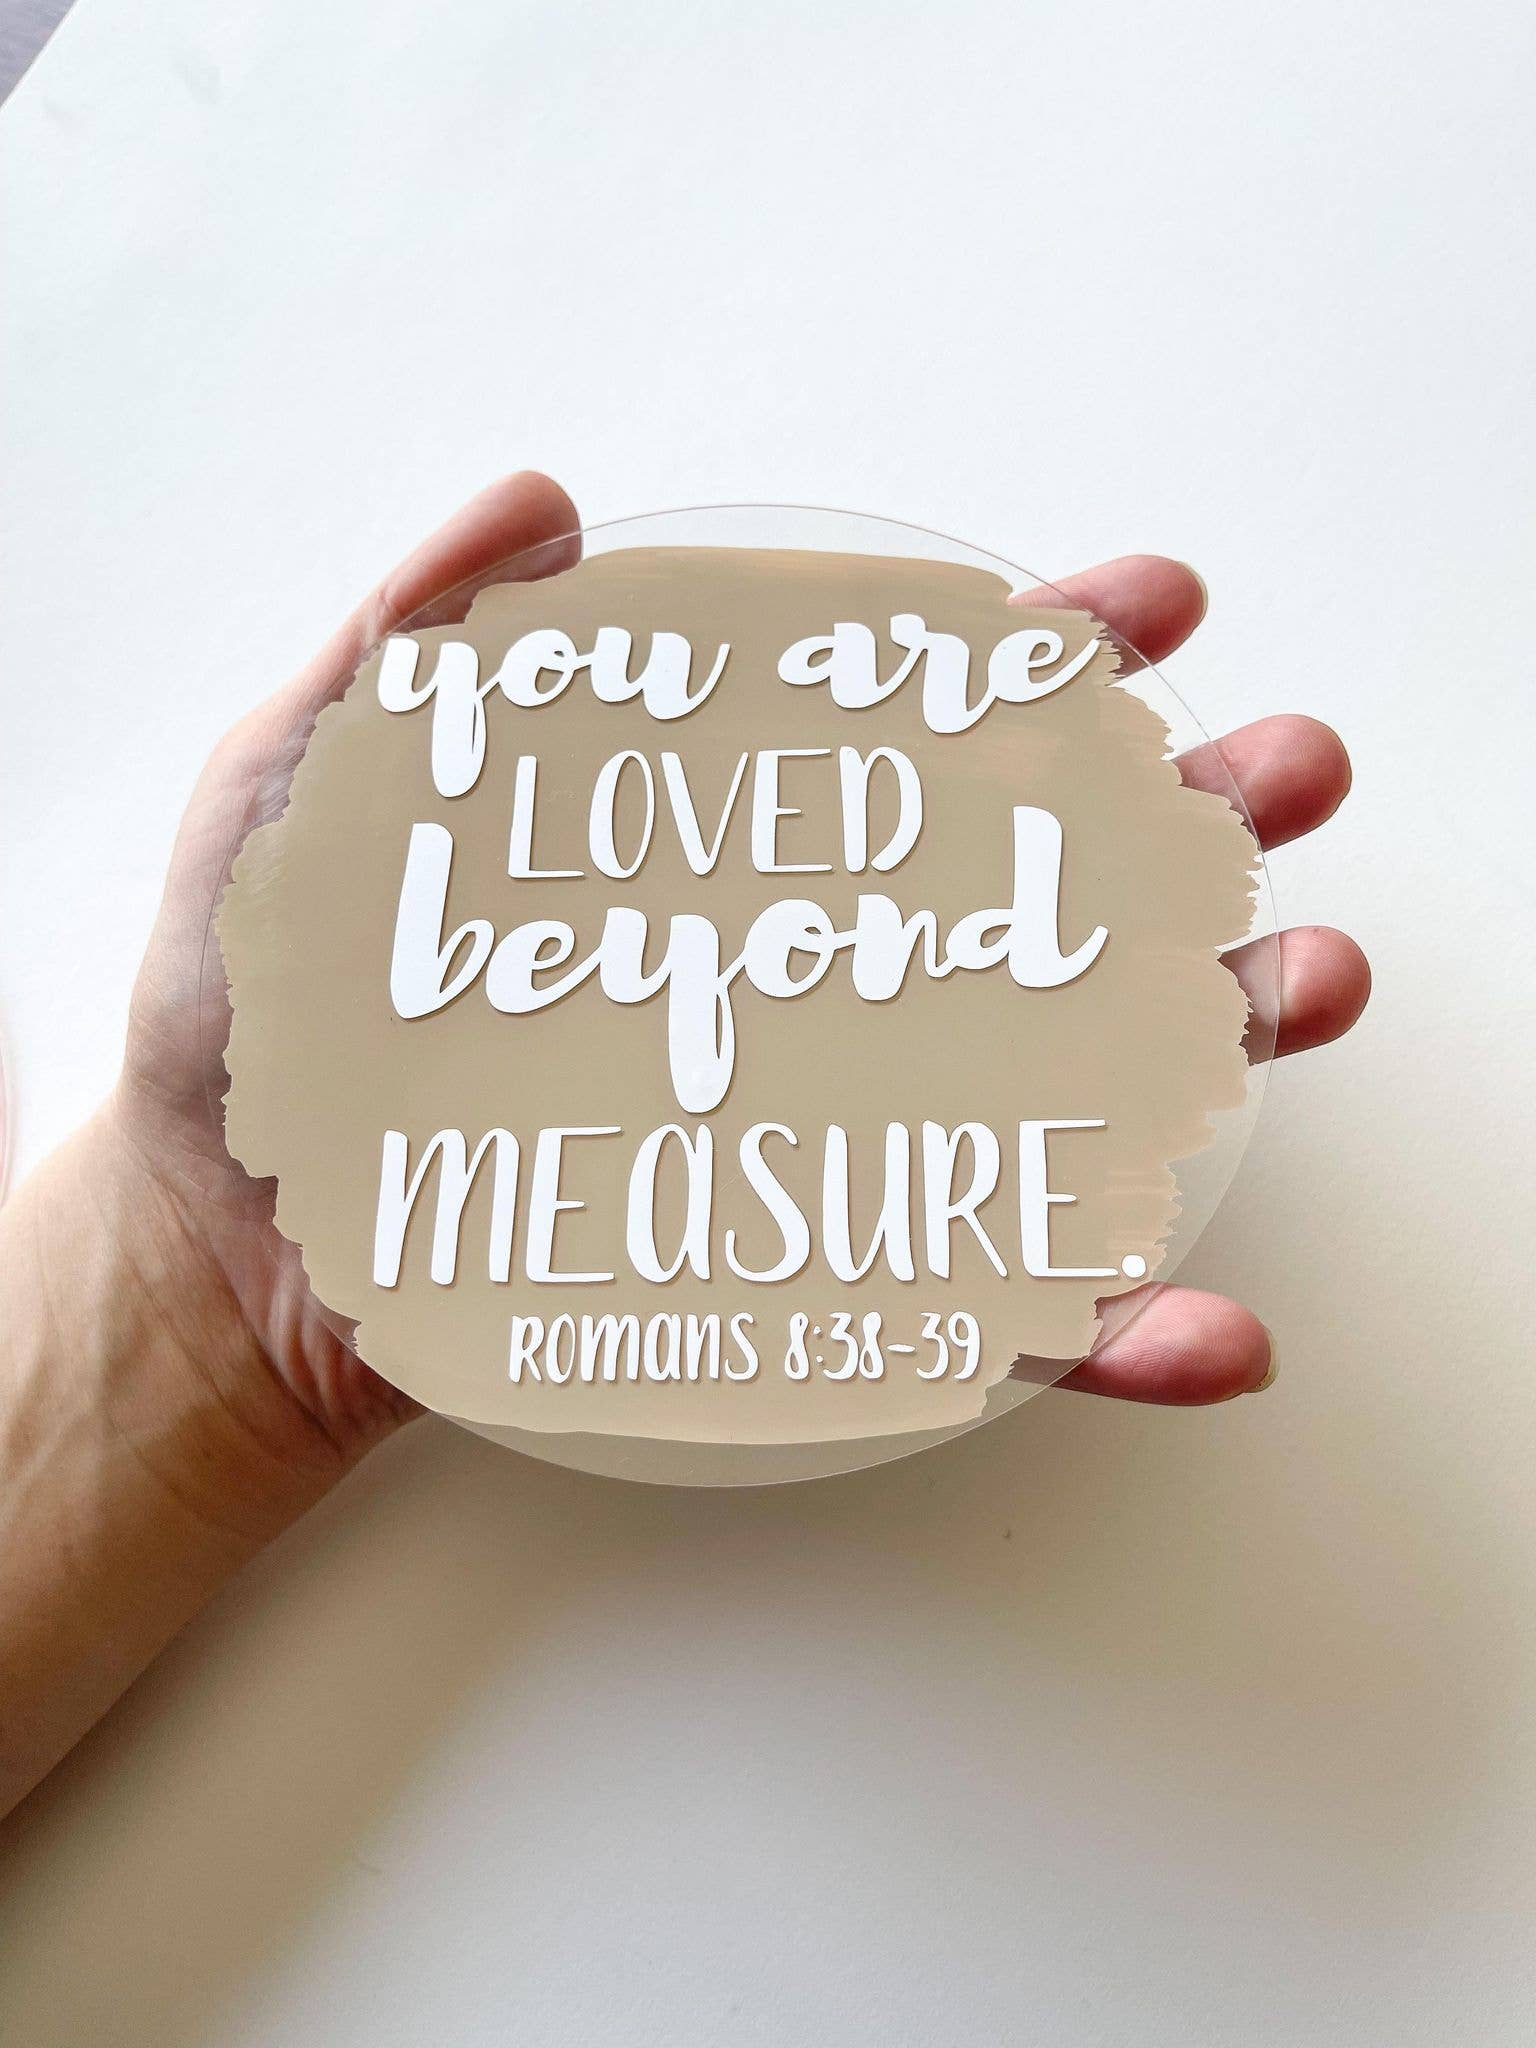 you are
LOVED
beyond
MEASURE.
ROMANS 8:38-39